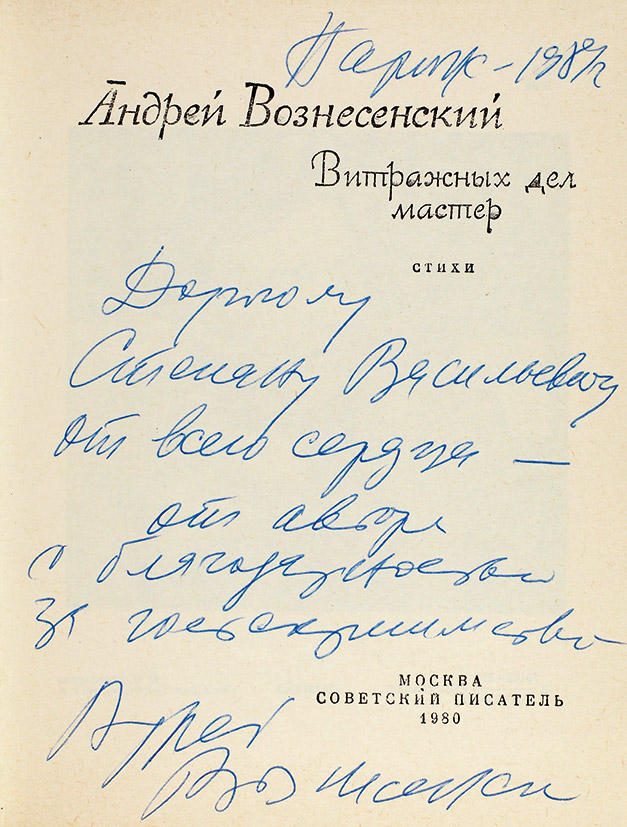 Париж – 1989 г
Андрей Вознесенский
Витражных дел
мастер
стихи
Дорогому
Степану Васильевичу
от всего сердца —
от автора
с благодарностью
за гостеприимство
Андрей
Вознесенский
МОСКВА
СОВЕТСКИЙ ПИСАТЕЛЬ
1980